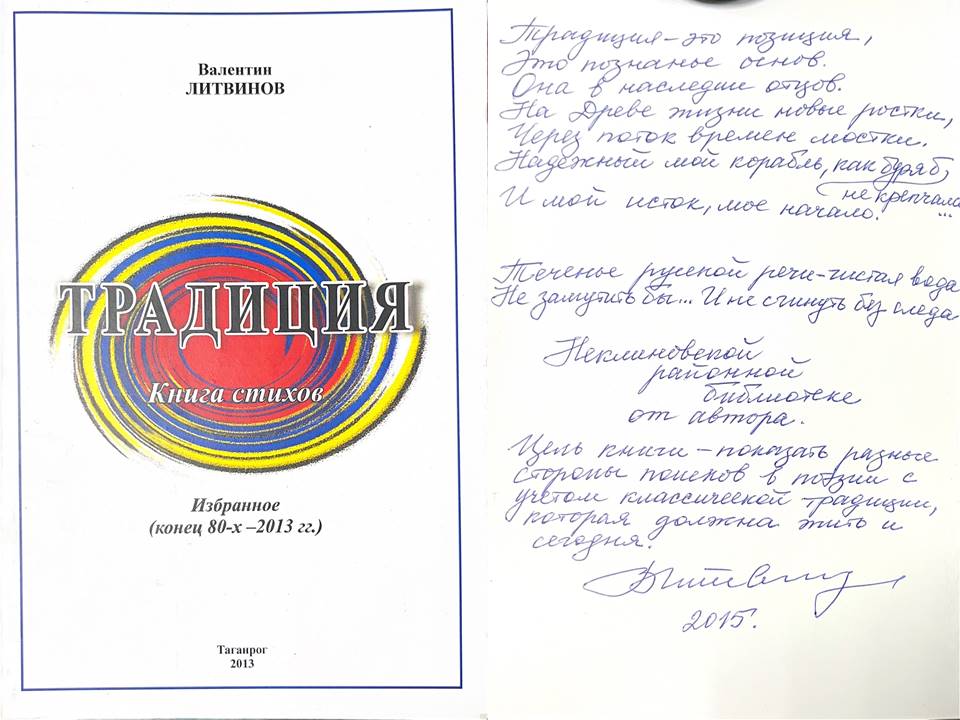 Валентин
ЛИТВИНОВ
ТРАДИЦИЯ
Книга стихов
Избранное
(конец 80-х –2013 гг.)
Таганрог
2013
Традиция – это позиция,
Это познанье основ.
Она в наследии отцов.
На Древе жизни новые ростки,
Через поток времен мостки.
Надежный мой корабль, как буря б
не крепчала...
И мой исток, мое начало.
Теченье русской речи – чистая вода
Не замутить бы... И не сгинуть без следа
Неклиновской
районной
библиотеке
от автора.
Цель книги – показать разные
стороны поисков в поэзии с
учетом классической традиции,
которая должна жить и
сегодня.
2015г.